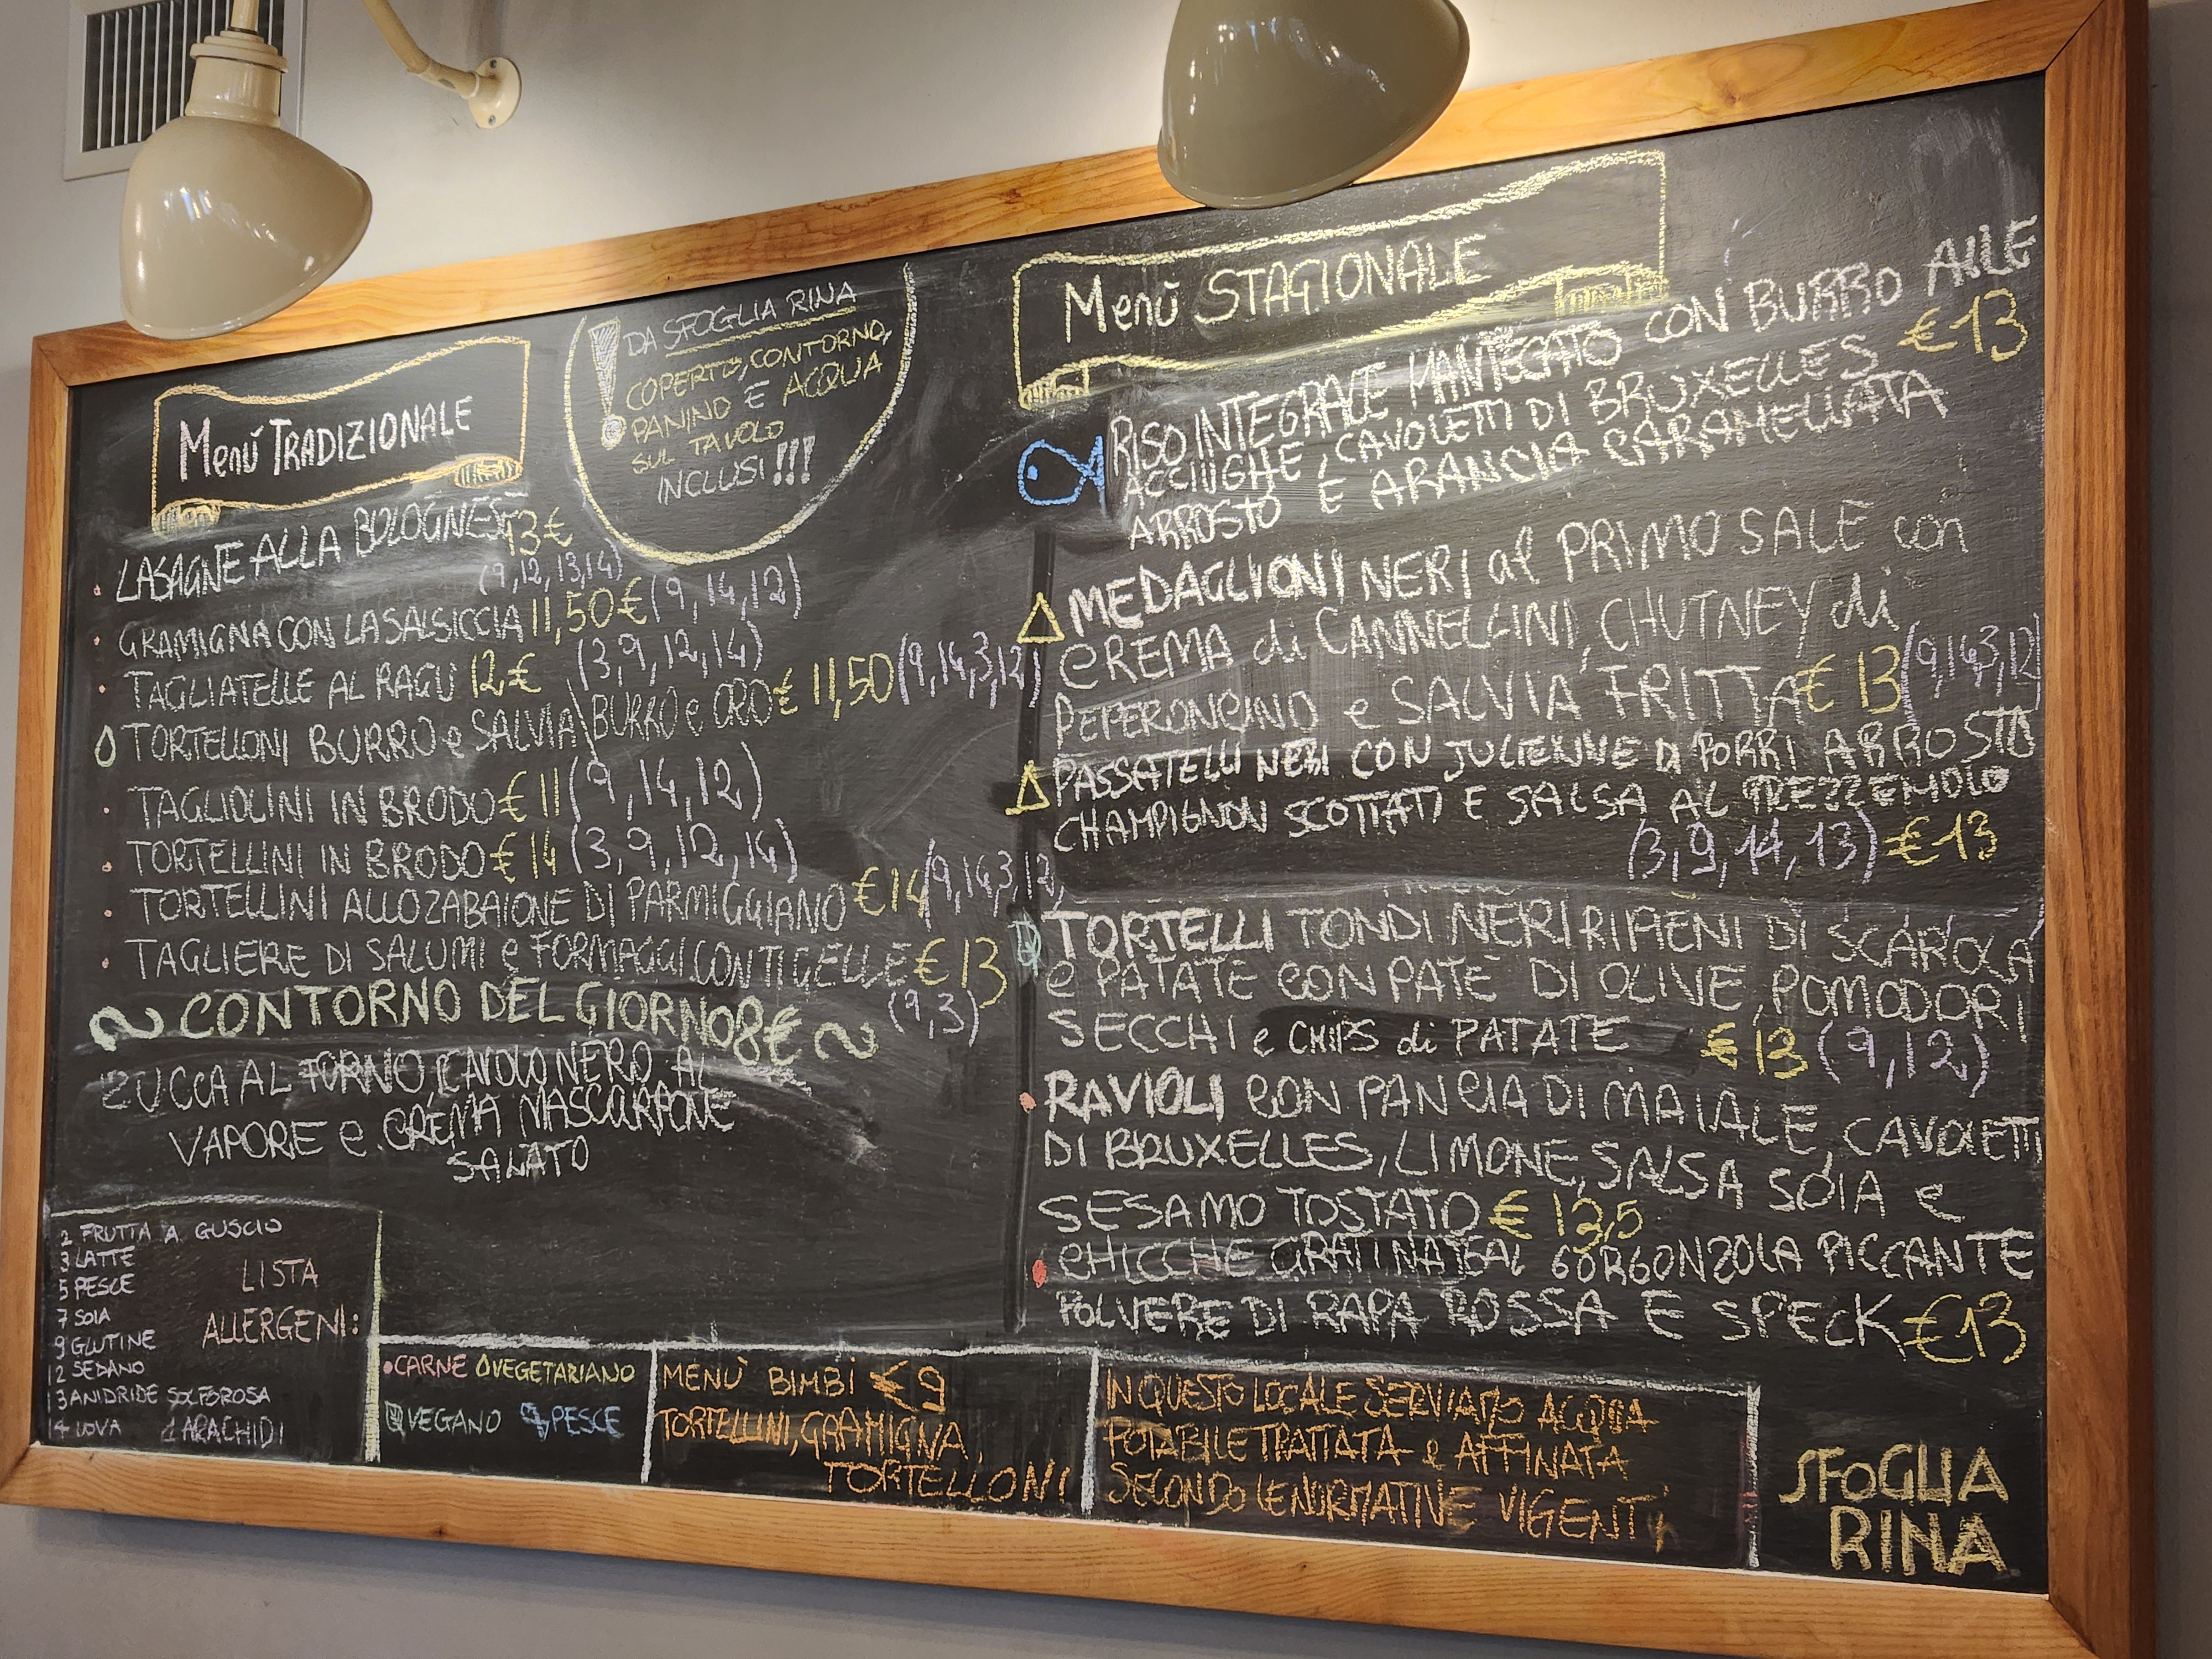 Menù TRADIZIONALE
LASAGNE ALLA BOLOGNESE 13€
(9,12,13,14)
GRAMIGNA CON LA SALSICCIA 11,50€ (9,14,12)
TAGLIATELLE AL RAGÙ 12€ (3,9,12,14)
TORTELLONI BURRO e SALVIA\BURRO e ORO € 11,50 (9,14,3,12)
TAGLIOLINI IN BRODO € 11 (9,14,12)
TORTELLINI IN BRODO € 14 (3,9,12,14)
TORTELLINI ALLO ZABAIONE DI PARMIGGIANO € 14 (9,14,3,12,
TAGLIERE DI SALUMI e FORMAGGI CON TIGELLE € 13
(9,3)
CONTORNO DEL GIORNO 8€
ZUCCA AL FORNO, CAVOLO NERO AL
VAPORE e CREMA MASCARPONE
SALATO
DA SFOGLIA RINA
COPERTO, CONTORNO,
PANINO E ACQUA
SUL TAVOLO
INCLUSI!!!
Menù STAGIONALE
RISO INTEGRALE MANTECATO CON BURRO ALLE
ACCIUGHE, CAVOLETTI DI BRUXELLES € 13
ARROSTO E ARANCIA CARAMELLATA
MEDAGLIONI NERI al PRIMO SALE con
CREMA di CANNELLINI, CHUTNEY di
PEPERONCINO e SALVIA FRITTA € 13 (9,14,3,12
PASSATELLI NERI CON JULIENNE DI PORRI ARROSTO
CHAMPIGNON SCOTTATI E SALSA AL PREZZEMOLO
(3,9,14,13) € 13
TORTELLI TONDI NERI RIPIENI DI SCAROLA
e PATATE CON PATÈ DI OLIVE, POMODORI
SECCHI e CHIPS di PATATE € 13 (9,12)
RAVIOLI CON PANCIA DI MAIALE, CAVOLETTI
DI BRUXELLES, LIMONE, SALSA SOIA e
SESAMO TOSTATO € 13,5
CHICCHE GRATINATE AL GORGONZOLA PICCANTE
POLVERE DI RAPA ROSSA E SPECK € 13
LISTA
ALLERGENI:
2 FRUTTA A GUSCIO
3 LATTE
5 PESCE
7 SOIA
9 GLUTINE
12 SEDANO
13 ANIDRIDE SOLFOROSA
14 UOVA 1 ARACHIDI
CARNE VEGETARIANO
VEGANO PESCE
MENÙ BIMBI € 9
TORTELLINI, GRAMIGNA,
TORTELLONI
IN QUESTO LOCALE SERVIAMO ACQUA
POTABILE TRATTATA e AFFINATA
SECONDO LE NORMATIVE VIGENTI
SFOGLIA
RINA